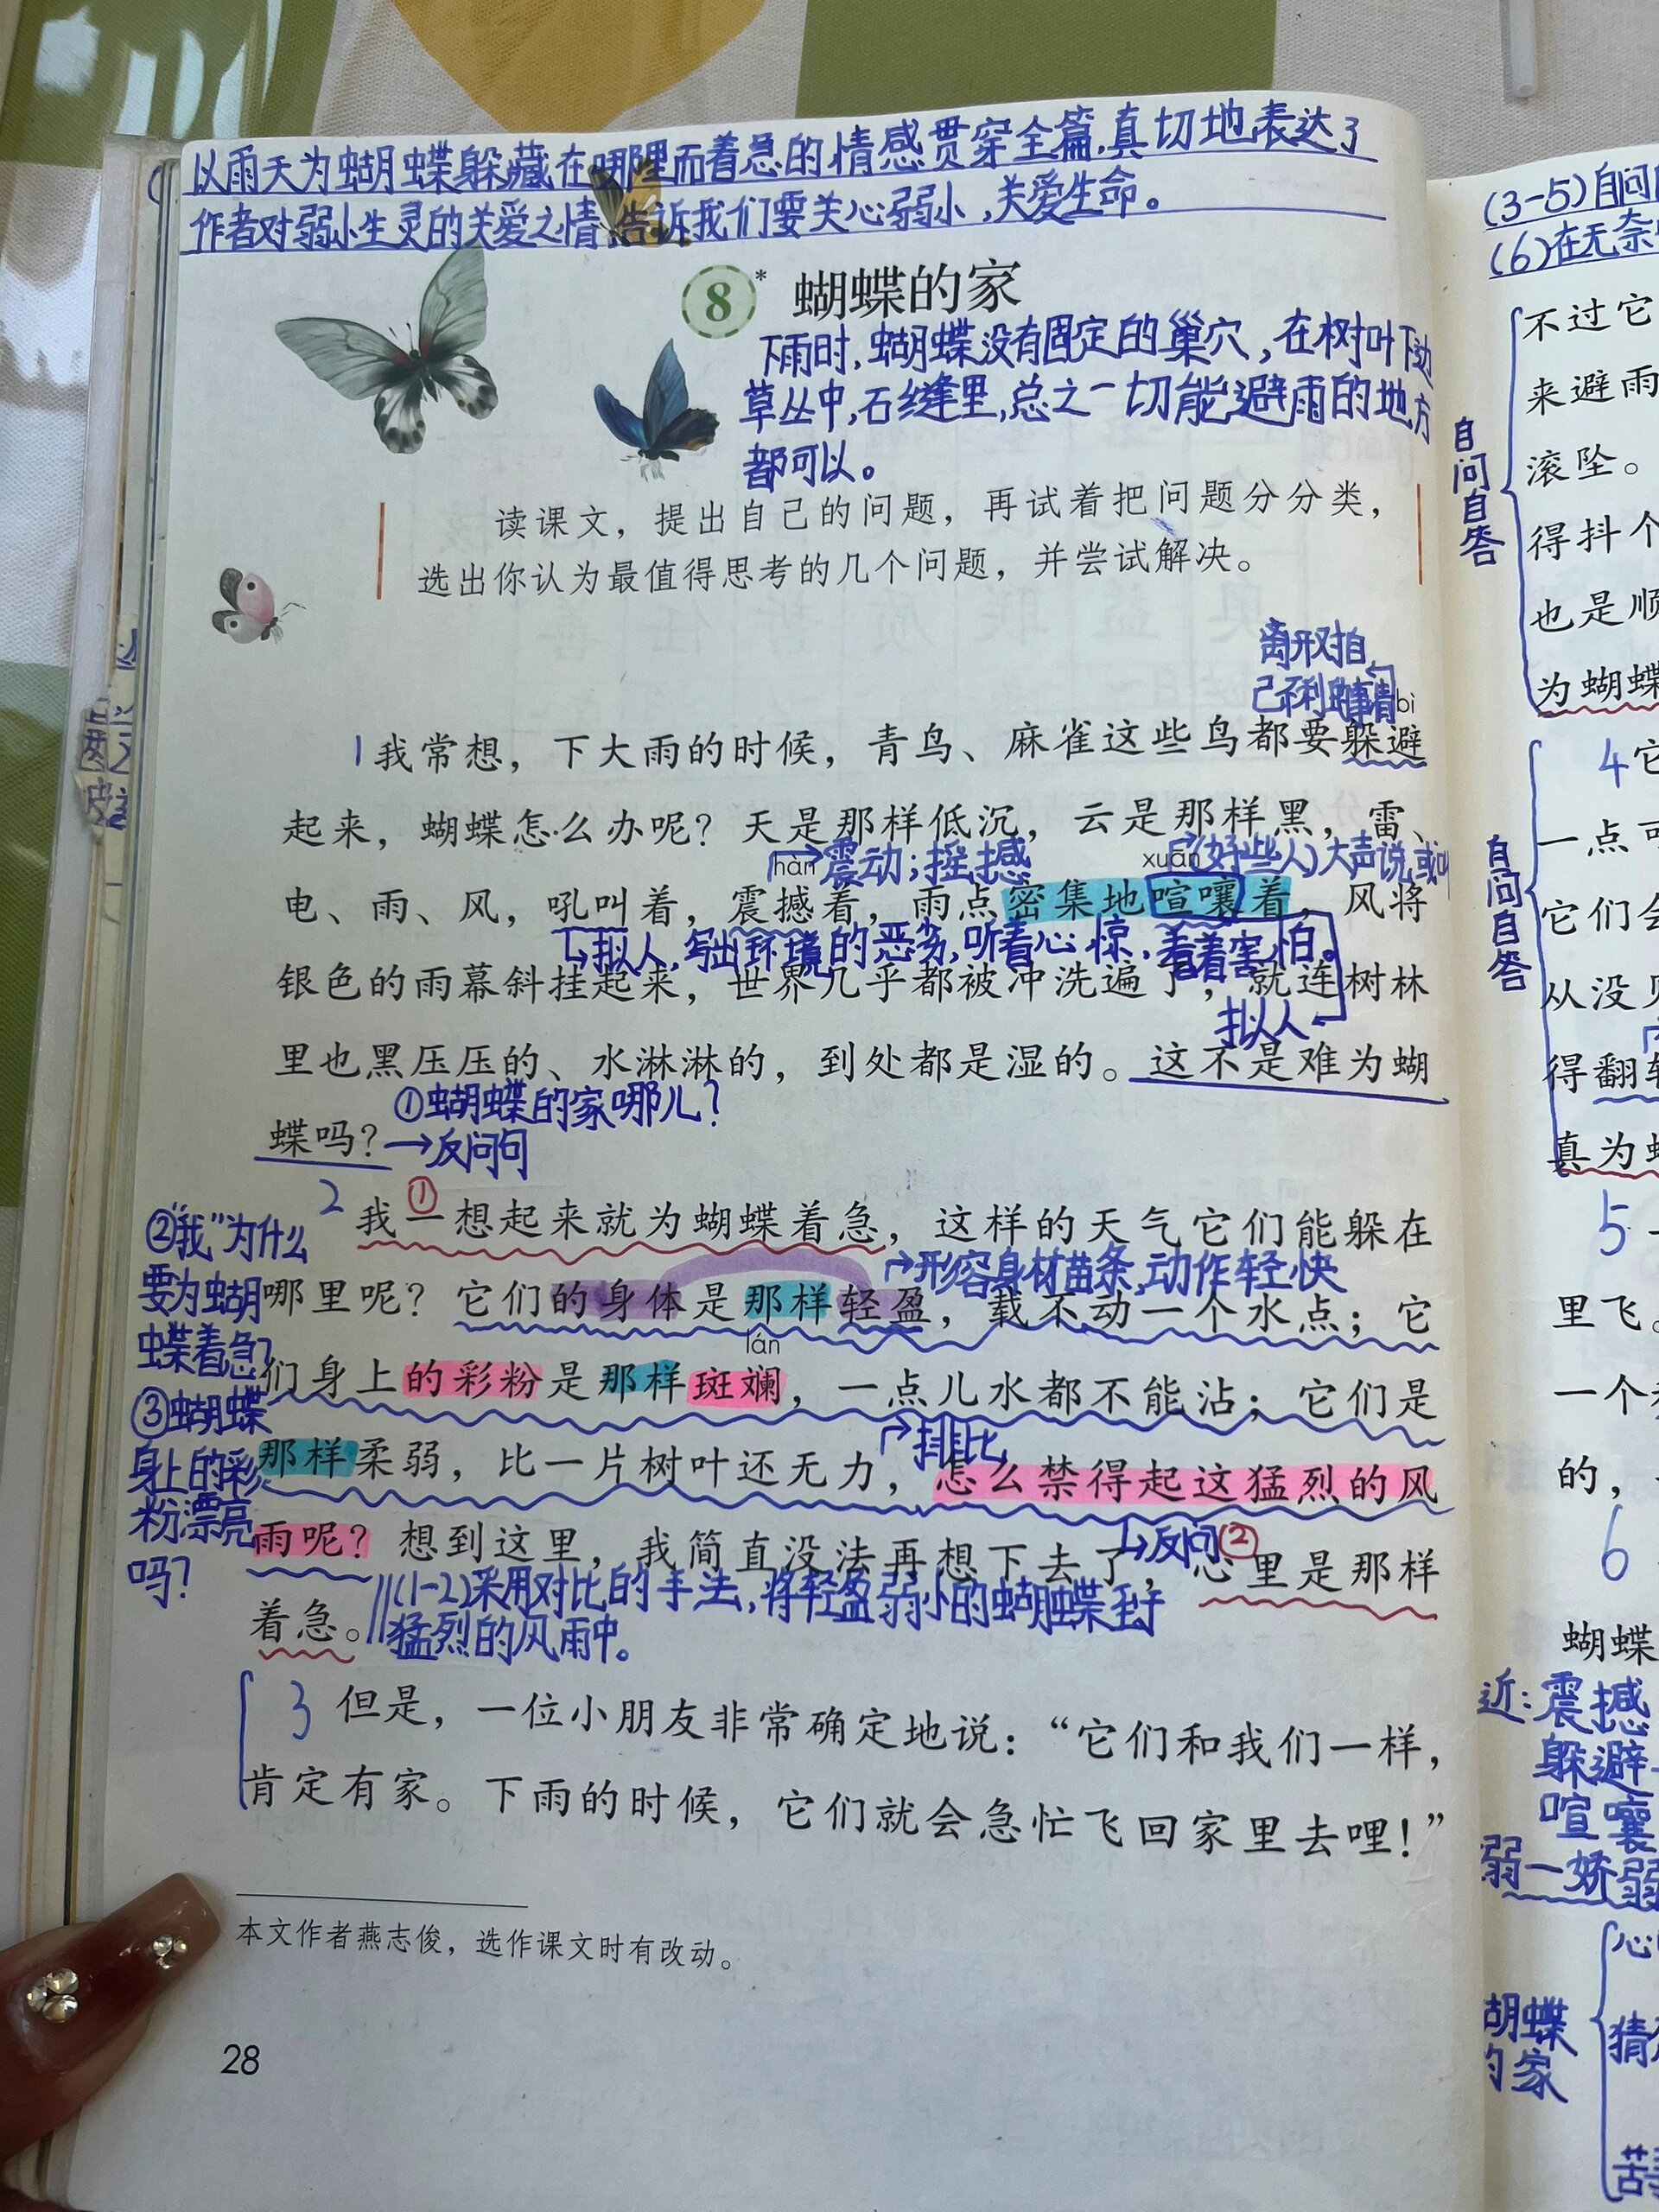 以雨天为蝴蝶躲藏在哪里而着急的情感贯穿全篇.真切地表达了
作者对弱小生灵的关爱之情,告诉我们要关心弱小,关爱生命。
8* 蝴蝶的家
下雨时,蝴蝶没有固定的巢穴,在树叶下边
草丛中,石缝里,总之一切能避雨的地方
都可以。
读课文，提出自己的问题，再试着把问题分分类，
选出你认为最值得思考的几个问题，并尝试解决。
离开对自
己不利的事情
bì
1 我常想，下大雨的时候，青鸟、麻雀这些鸟都要躲避
起来，蝴蝶怎么办呢？天是那样低沉，云是那样黑，雷、
hàn 震动;摇撼 xuān (好些人)大声说或叫
电、雨、风，吼叫着，震撼着，雨点密集地喧嚷着，风将
拟人,写出环境的恶劣,听着心惊,看着害怕。
银色的雨幕斜挂起来，世界几乎都被冲洗遍了，就连树林
拟人
里也黑压压的、水淋淋的，到处都是湿的。这不是难为蝴
①蝴蝶的家哪儿?
蝶吗？→反问句
2 我一想起来就为蝴蝶着急，这样的天气它们能躲在
①
形容身材苗条,动作轻快
哪里呢？它们的身体是那样轻盈，载不动一个水点；它
lán
们身上的彩粉是那样斑斓，一点儿水都不能沾；它们是
排比
那样柔弱，比一片树叶还无力，怎么禁得起这猛烈的风
雨呢？想到这里，我简直没法再想下去了，心里是那样
反问 ②
着急。
(1-2)采用对比的手法,将轻盈弱小的蝴蝶至于
猛烈的风雨中。
②"我"为什么
要为蝴
蝶着急?
③蝴蝶
身上的彩
粉漂亮
吗?
3 但是，一位小朋友非常确定地说：“它们和我们一样，
肯定有家。下雨的时候，它们就会急忙飞回家里去哩！”
本文作者燕志俊，选作课文时有改动。
28
(3-5)自问
(6)在无奈
不过它
来避雨
滚坠。
得抖个
也是顺
为蝴蝶
自问自答
4它
一点可
它们会
从没见
得翻
真为
自问自答
5 一
里飞。
一个
的，
6
蝴蝶
近:震撼
躲避
喧嚷
弱一娇弱
胡蝶
的家
心
猜
苦